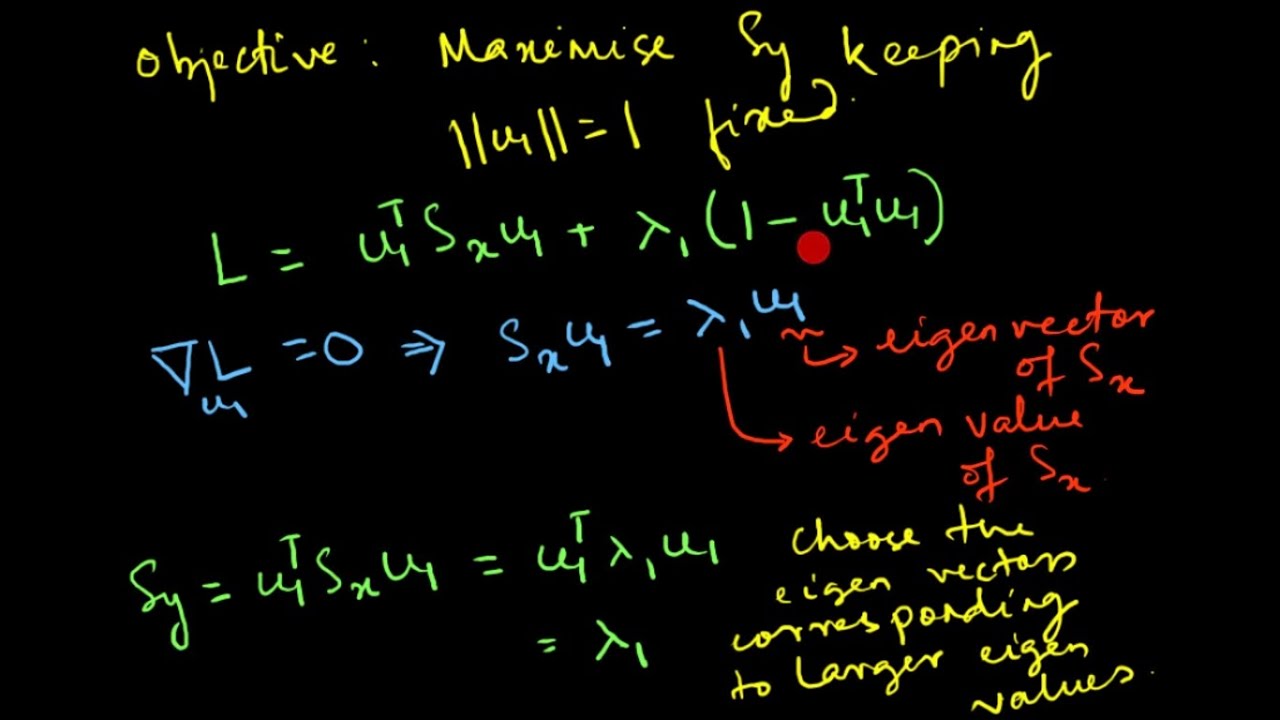 Objective: Maximise Sy keeping
||u₁|| = 1 fixed.
L = u₁ᵀ Sₓ u₁ + λ₁ (1 - u₁ᵀu₁)
∇L = 0 ⇒ Sₓ u₁ = λ₁ u₁
u₁
eigen vector
of Sₓ
eigen value
of Sₓ
Sy = u₁ᵀ Sₓ u₁ = u₁ᵀ λ₁ u₁
= λ₁
Choose the
eigen vectors
corresponding
to larger eigen
values.